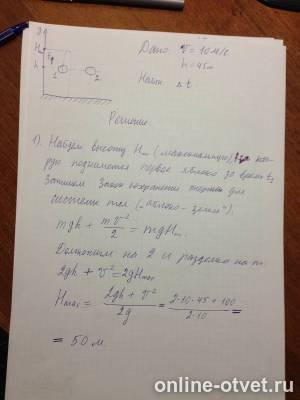 H
h
1
2
Дано: V = 10 м/с
h = 45м
Найти Δt
Решение.
1) Найдем высоту Hm (максимальную), на
рую поднимется первое яблоко за время t1
Запишем закон сохранения энергии для
системы тел („яблоко-земля“).
mgh + mv²/2 = mgHm.
Домножим на 2 и разделим на m.
2gh + v² = 2gHmax
Hmax = (2gh + v²)/2g = (2·10·45 + 100)/2·10 =
= 50 м
online-otvet.ru